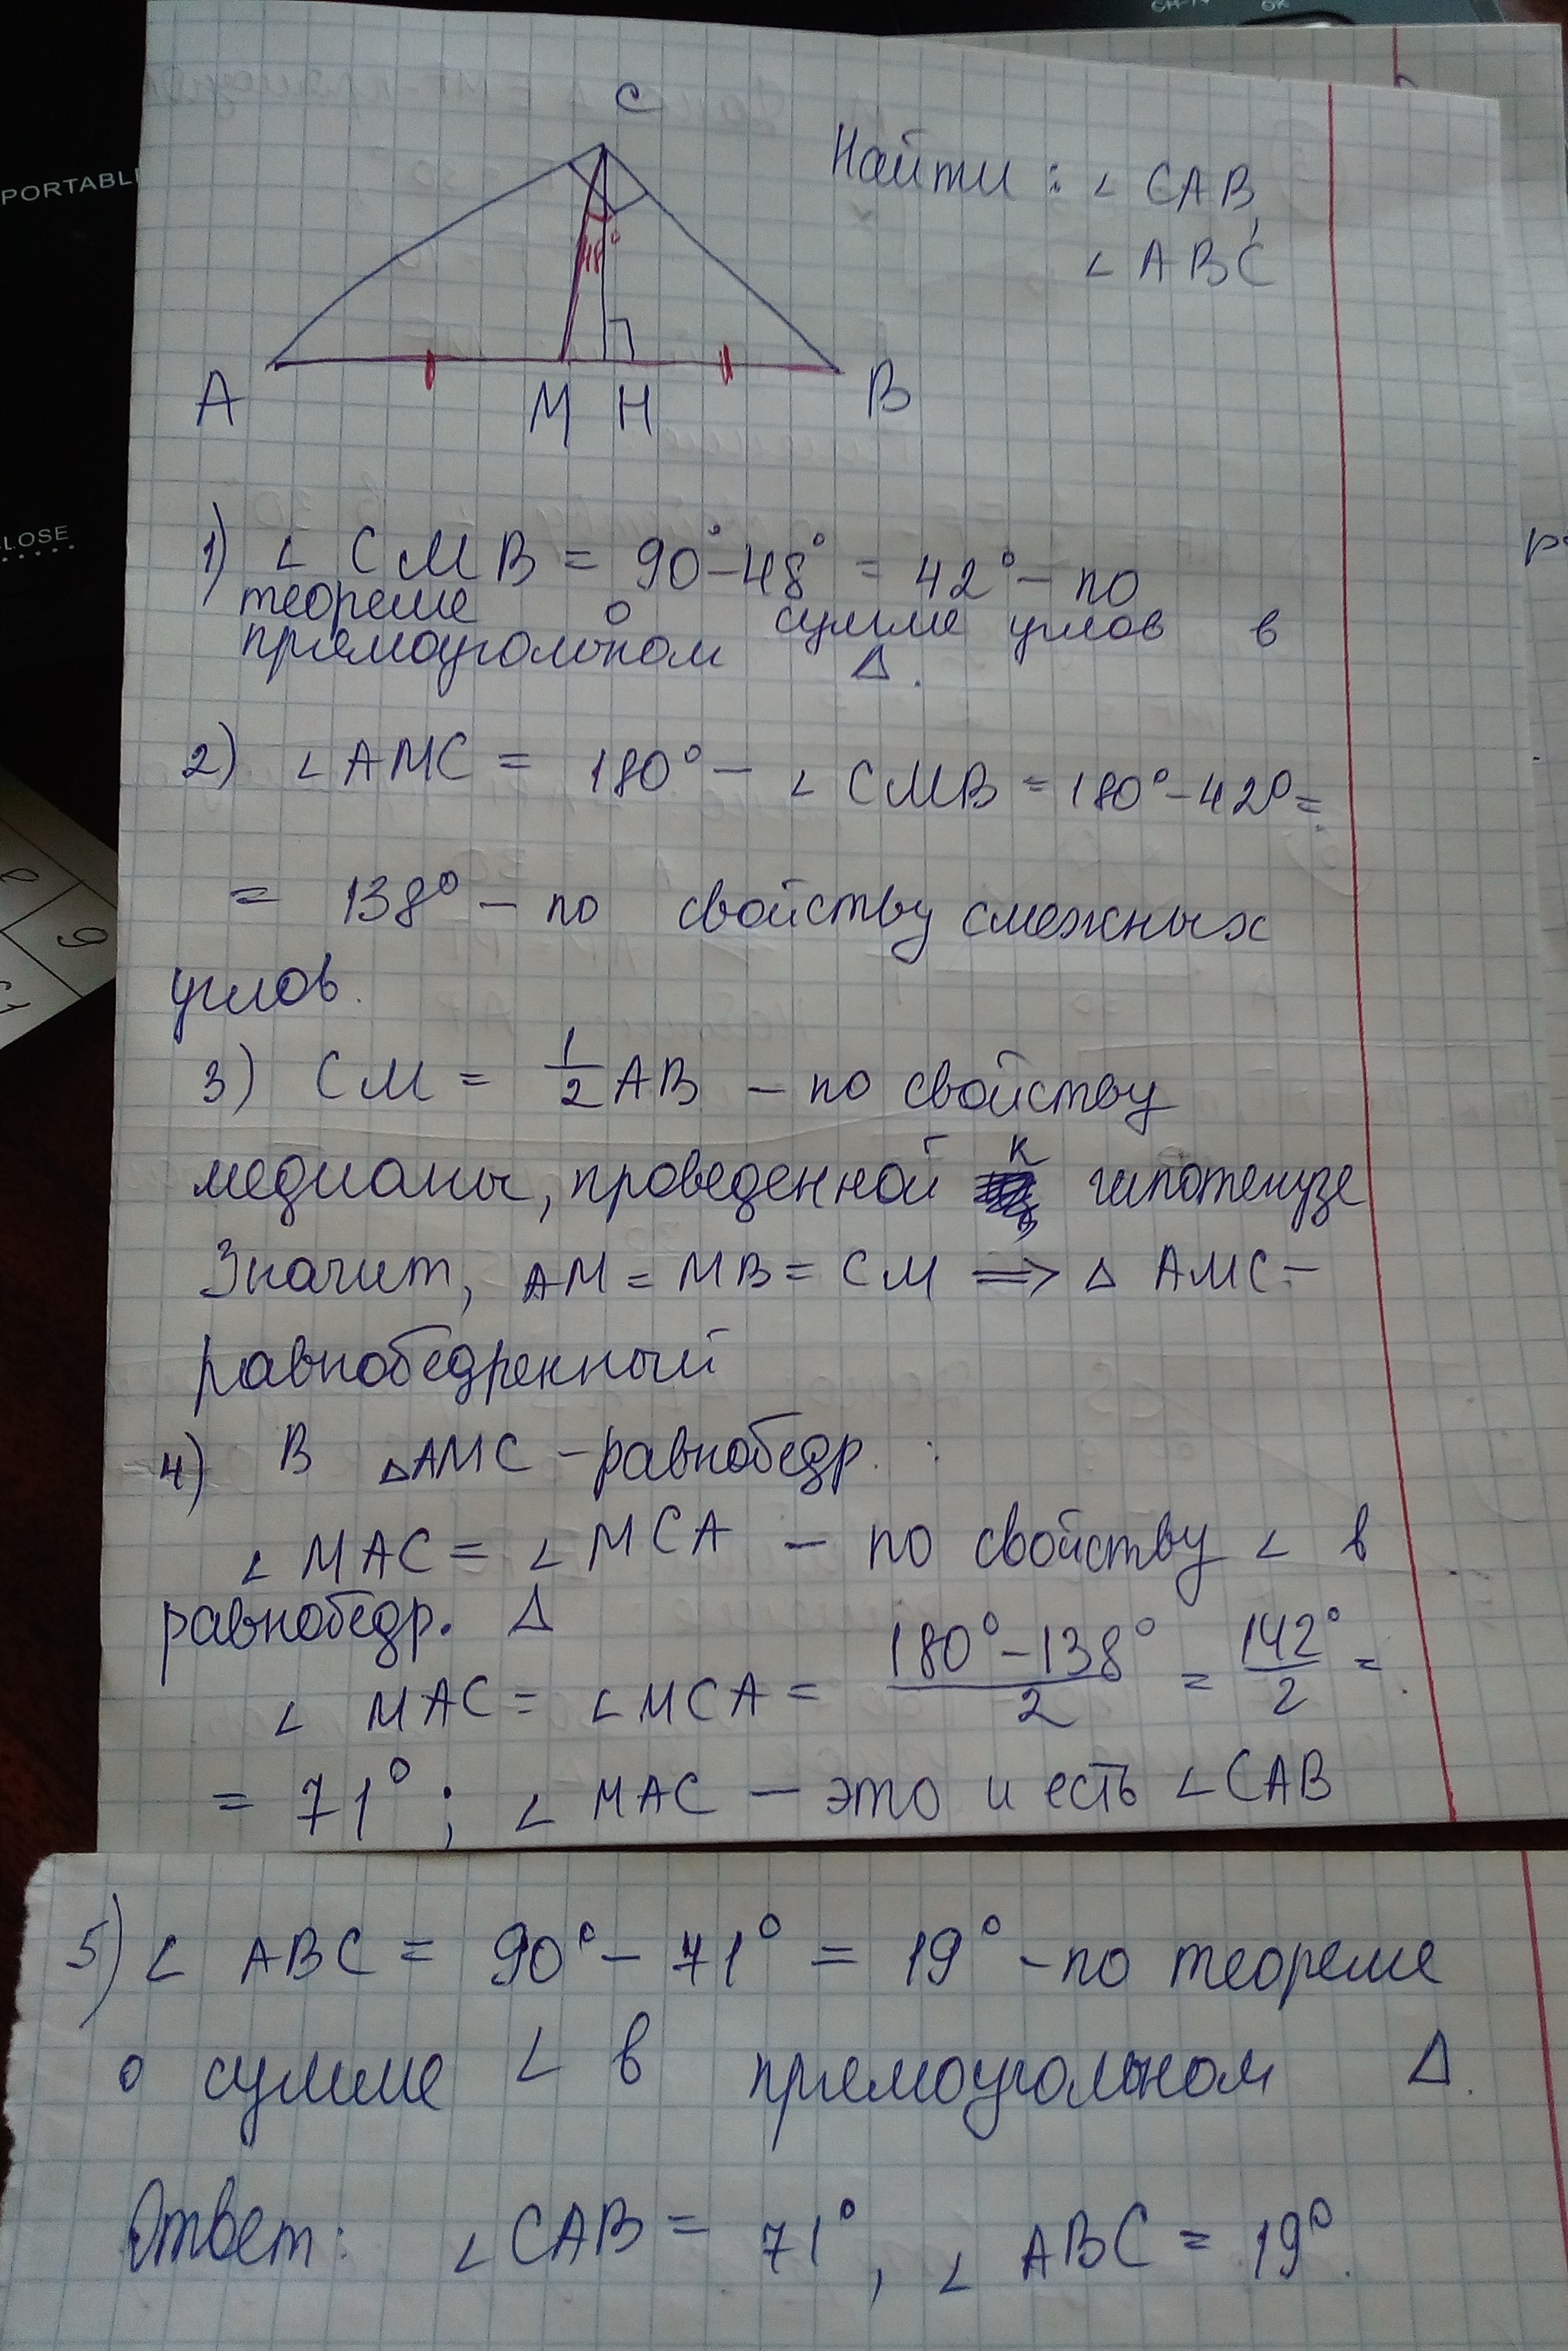 PORTABL
CLOSE
OK
C
Найти : ∠ CAB,
∠ ABC
48°
A M H B
1) ∠ CMB = 90°-48° = 42° - по
теореме о сумме углов в
прямоугольном Δ.
2) ∠AMC = 180° - ∠ CMB = 180°-42°=
= 138° - по свойству смежных
углов.
3) CM = 1/2 AB - по свойству
медианы, проведенной к гипотенузе
Значит, AM = MB = CM => Δ AMC -
равнобедренный
4) В ΔAMC - равнобедр. :
∠ MAC = ∠ MCA - по свойству ∠ в
равнобедр. Δ
∠ MAC = ∠MCA = (180°-138°)/2 = 142°/2 =
= 71° ; ∠ MAC - это и есть ∠CAB
5) ∠ ABC = 90° - 71° = 19° - по теореме
о сумме ∠ в прямоугольном Δ.
Ответ: ∠CAB = 71°, ∠ ABC = 19°.